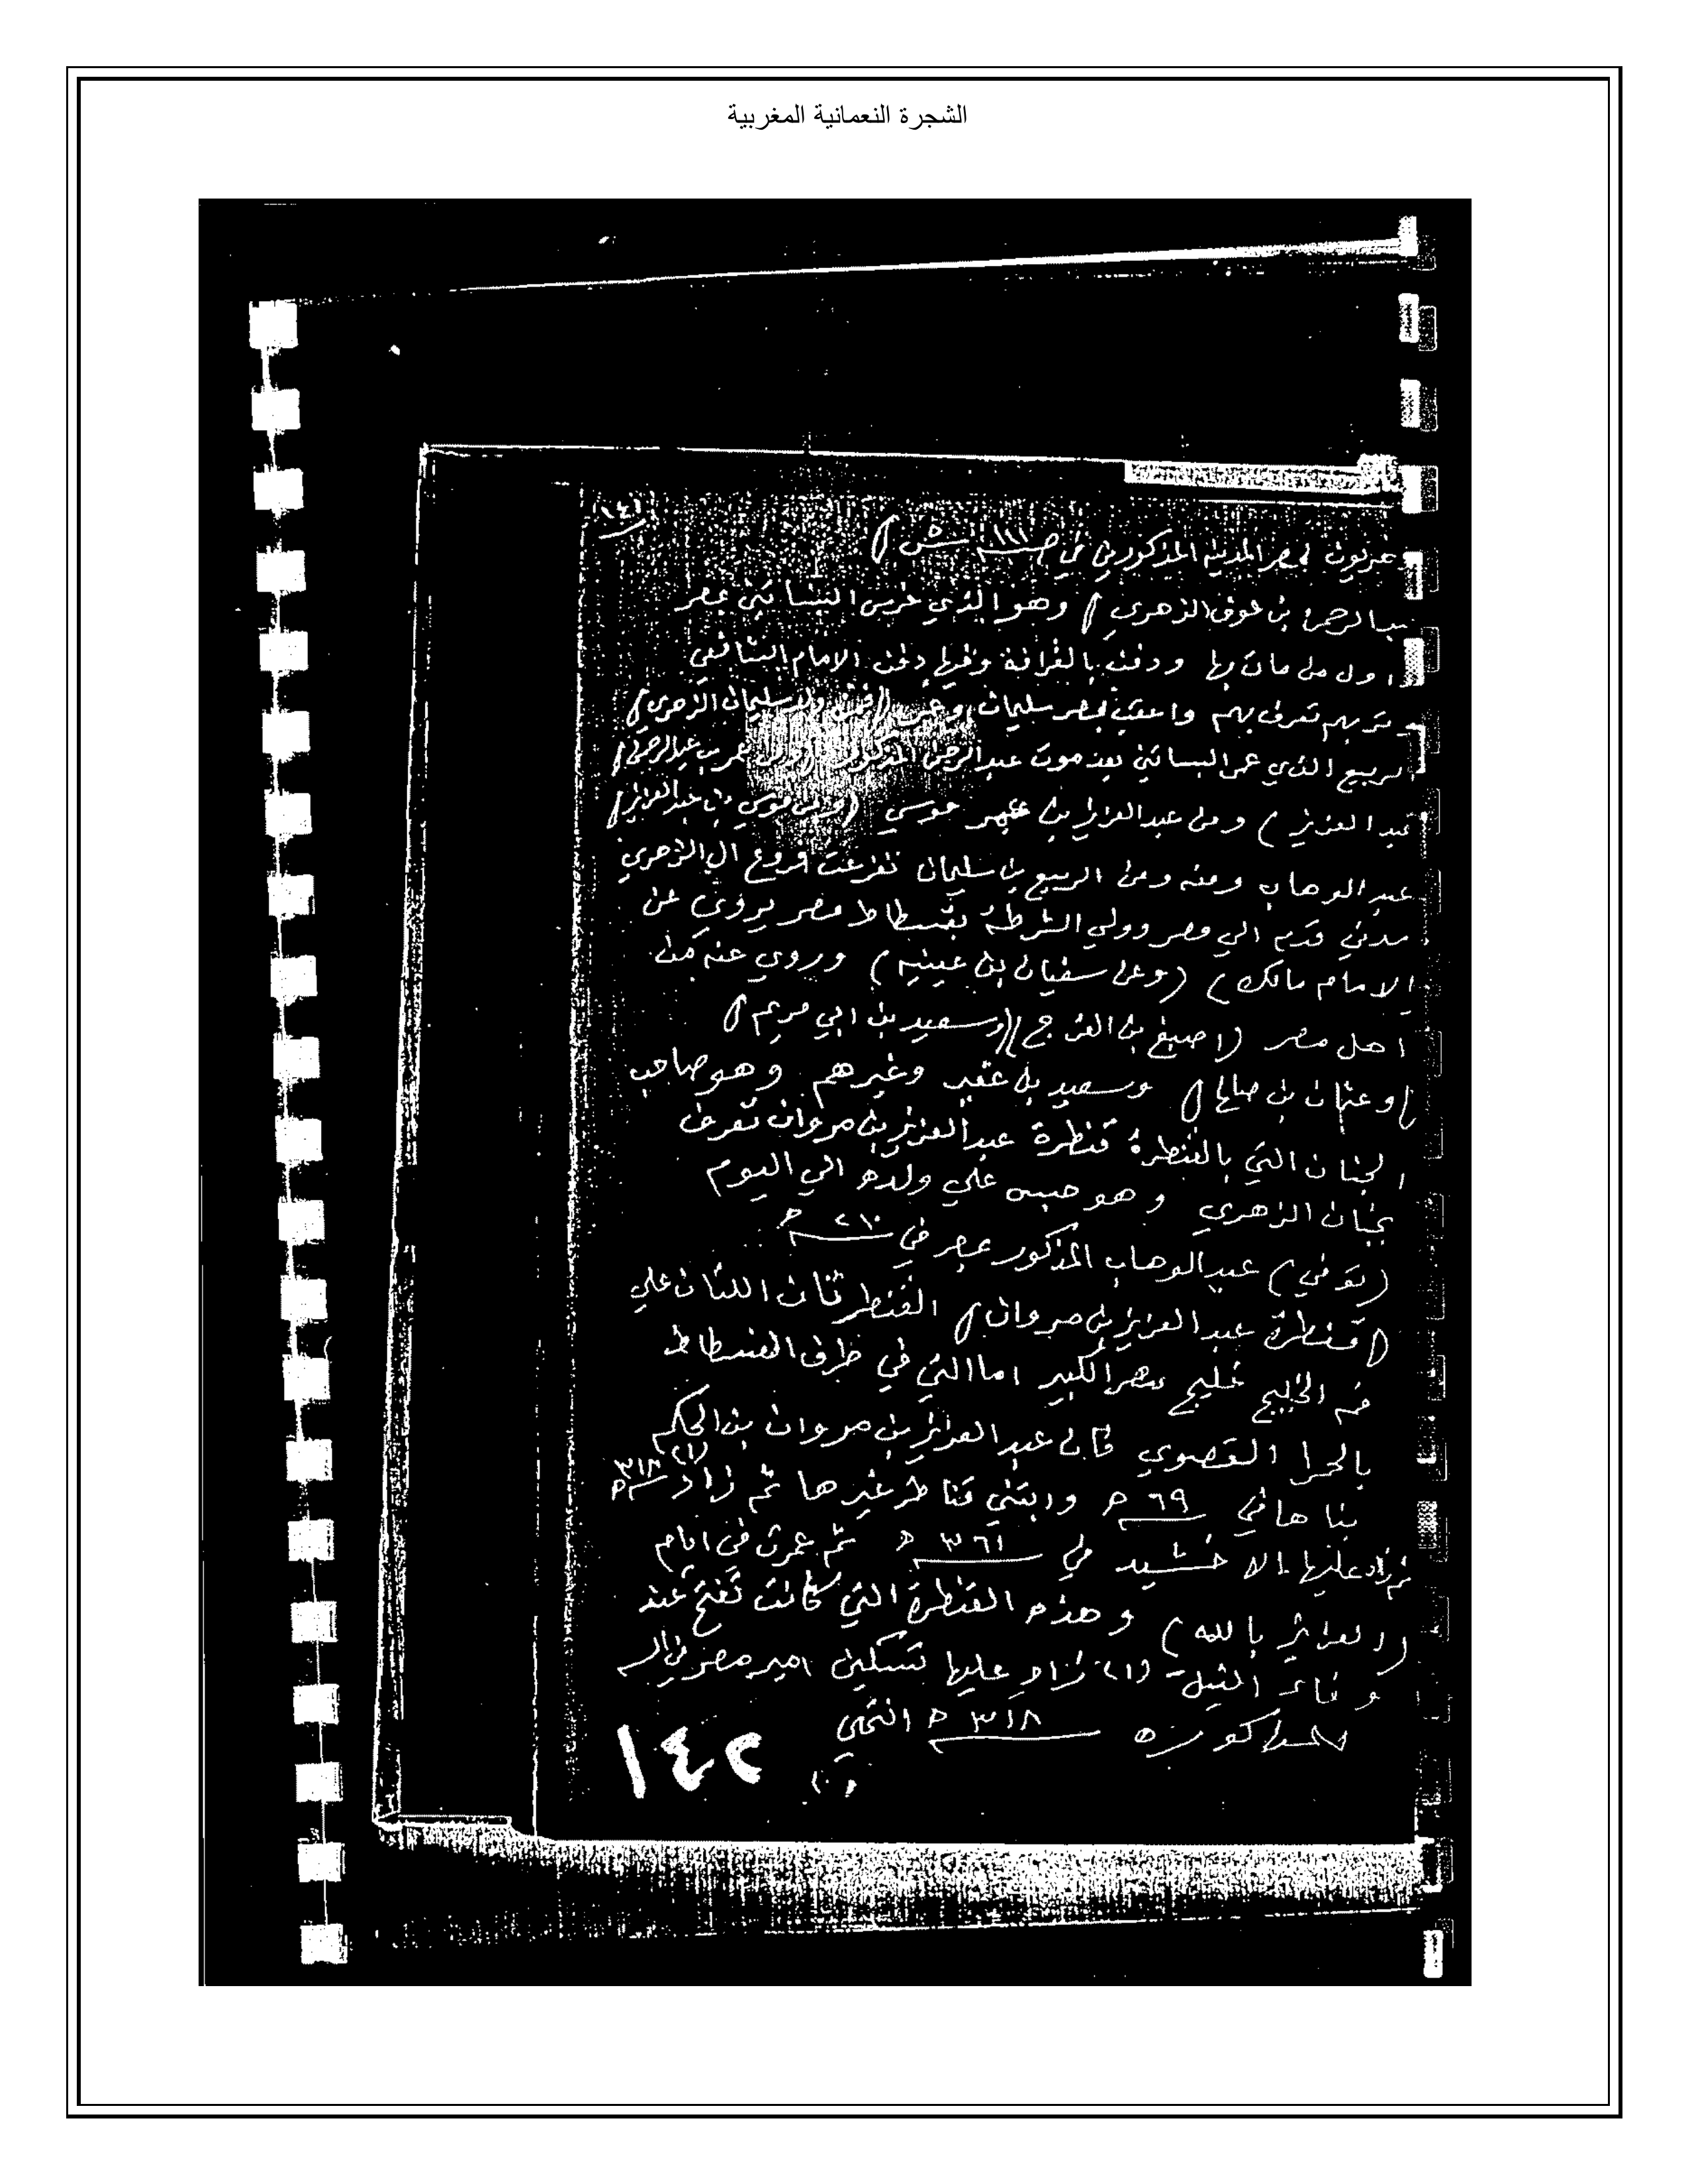 الشجرة النعمانية المغربية
١٤١
بمصر المدينة المذكورين في ص ١١١ ش
بن عوف الزهري) وهو الذي غرس البساتين بمصر
اول من مات بها ودفن بالقرافة وفيها دفن الامام الشافعي
تعرف بهم واعقب بمصر سليمان وعمر (فمن ولد سليمان الزهري)
الربيع الذي عمر البساتين بعد موت عبد الرحمن المذكور (ومن عمر بن عبد الرحمن)
عبد العزيز) ومن عبد العزيز بن عمر موسي (ومن موسي بن عبد العزيز)
عبد الوهاب ومنه ومن الربيع بن سليمان تفرعت فروع ال الزهري
مدني قدم الي مصر وولي الشرطة بفسطاط مصر يروي عن
الامام مالك) (وعن سفيان بن عيينه) وروي عنه من
اهل مصر (اصبغ بن الفرج) (وسعيد بن ابي مريم)
(وعثمان بن صالح) وسعيد بن عفير وغيرهم وهو صاحب
الجنان التي بالقنطرة قنطرة عبد العزيز بن مروان تعرف
بجنان الزهري وهو حبس علي ولده الي اليوم
(توفي) عبد الوهاب المذكور بمصر في ٢١٠ ه
(قنطرة عبد العزيز بن مروان) القنطرتان اللتان علي
فم الخليج خليج مصر الكبير اما التي في طرف الفسطاط
بالحمرا القصوي فان عبد العزيز بن مروان بن الحكم
بناها في ٦٩ ه وابتني قناطر غيرها ثم زاد (١) ٣١٨ ه
ثم زاد عليها الاخشيد في ٣٦١ ه ثم عمرت في ايام
(العزيز بالله) وهذه القنطرة التي كانت تفتح عند
وفاء النيل (١) زاد عليها تسكين امير مصر في
٣١٨ ه انتهي
١٤٢